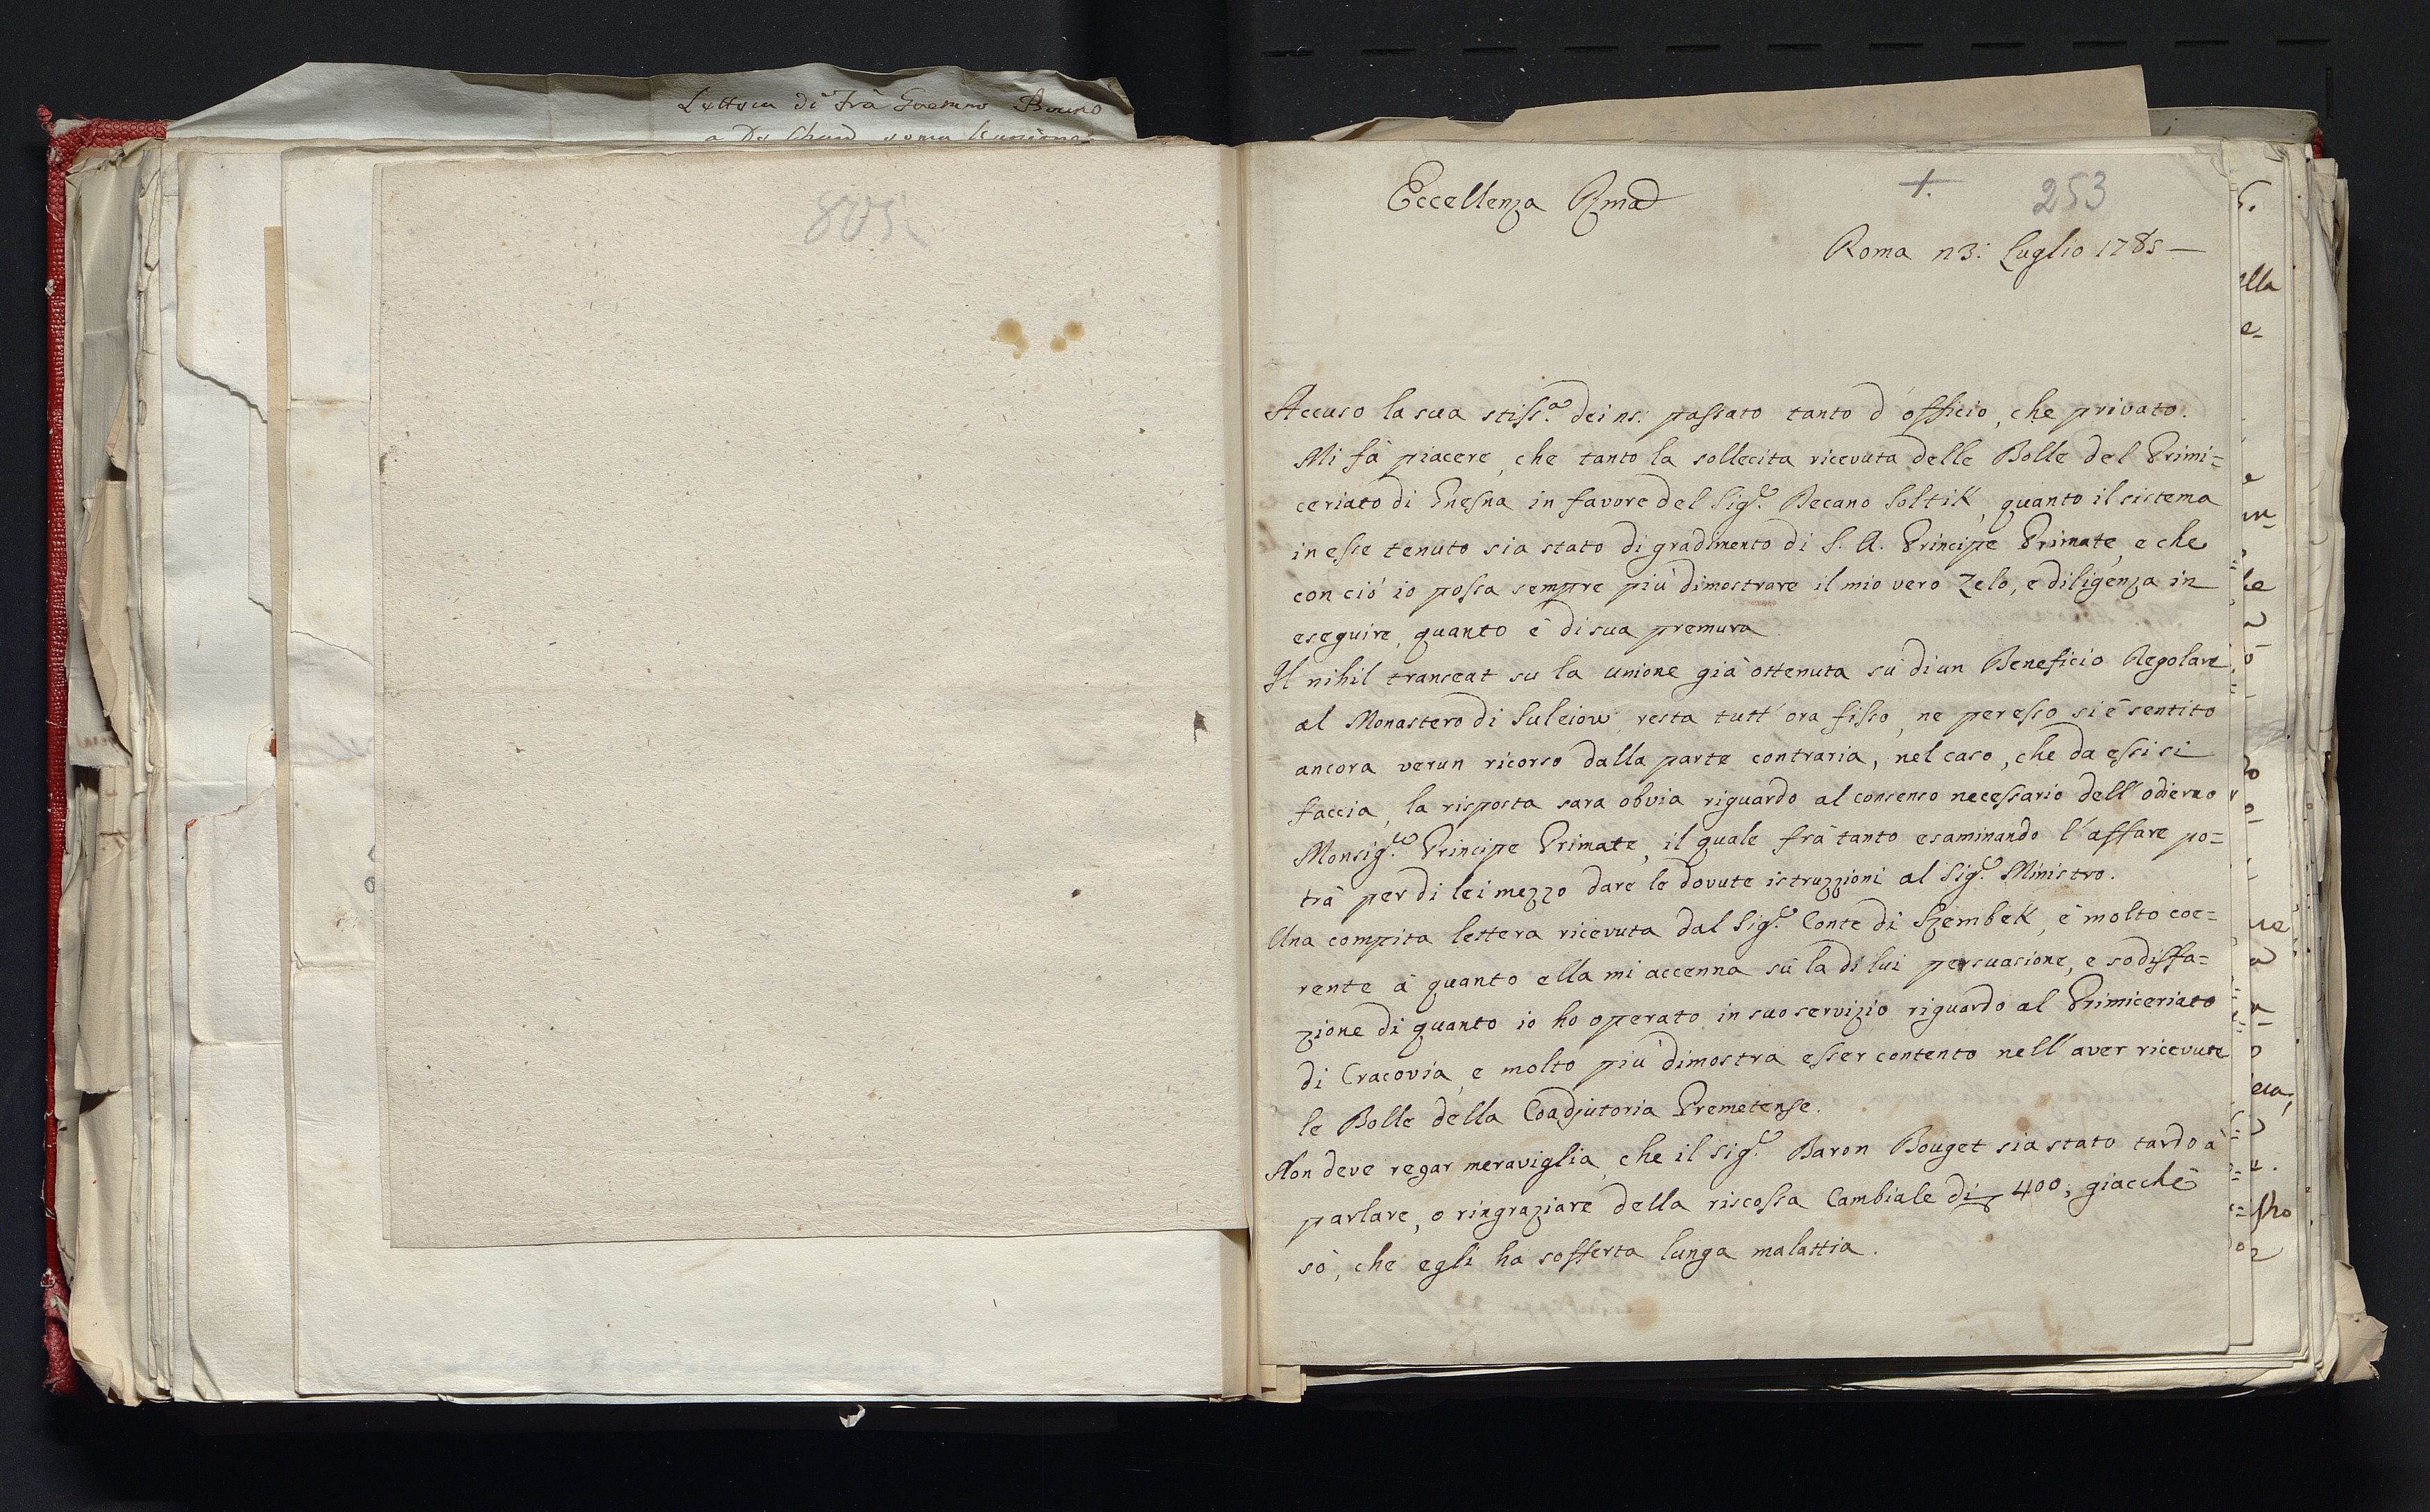 Lettera di Frà Gaetano Bruno
Eccellenza Rma
+. 253
Roma 13: Luglio 1785—
Accuso la sua stiss.a dei ns: passato tanto d'officio, che privato.
Mi fà piacere, che tanto la sollecita ricevuta delle Bolle del Primi=
ceriato di Gnesna in favore del Sig.e Decano Soltik, quanto il sistema
in esse tenuto sia stato di gradimento di S. A. Principe Primate, e che
con ciò io possa sempre più dimostrare il mio vero Zelo, e diligenza in
eseguire, quanto è di sua premura
Il nihil transeat su la unione già ottenuta sù di un Beneficio Regolare
al Monastero di Suleiow, resta tutt'ora fisso, ne per esso si è sentito
ancora verun ricorso dalla parte contraria, nel caso, che da essi si
faccia, la risposta sara obvia riguardo al consenso necessario dell'odierno
Monsig.re Principe Primate, il quale frà tanto esaminando l'affare po=
trà per di lei mezzo dare le dovute istruzzioni al Sig.e Ministro.
Una compita lettera ricevuta dal Sig.e Conte di Szembek, è molto coe=
rente à quanto ella mi accenna sù la di lui persuasione, e sodisfa=
zione di quanto io ho operato in suo servizio riguardo al Primiceriato
di Cracovia, e molto più dimostra esser contento nell'aver ricevute
le Bolle della Coadjutoria Premetense.
Non deve regar meraviglia, che il Sig.e Baron Bouget sia stato tardo à
parlare, o ringraziare della riscossa Cambiale di 400, giacchè
sò, che egli ha sofferta lunga malattia.